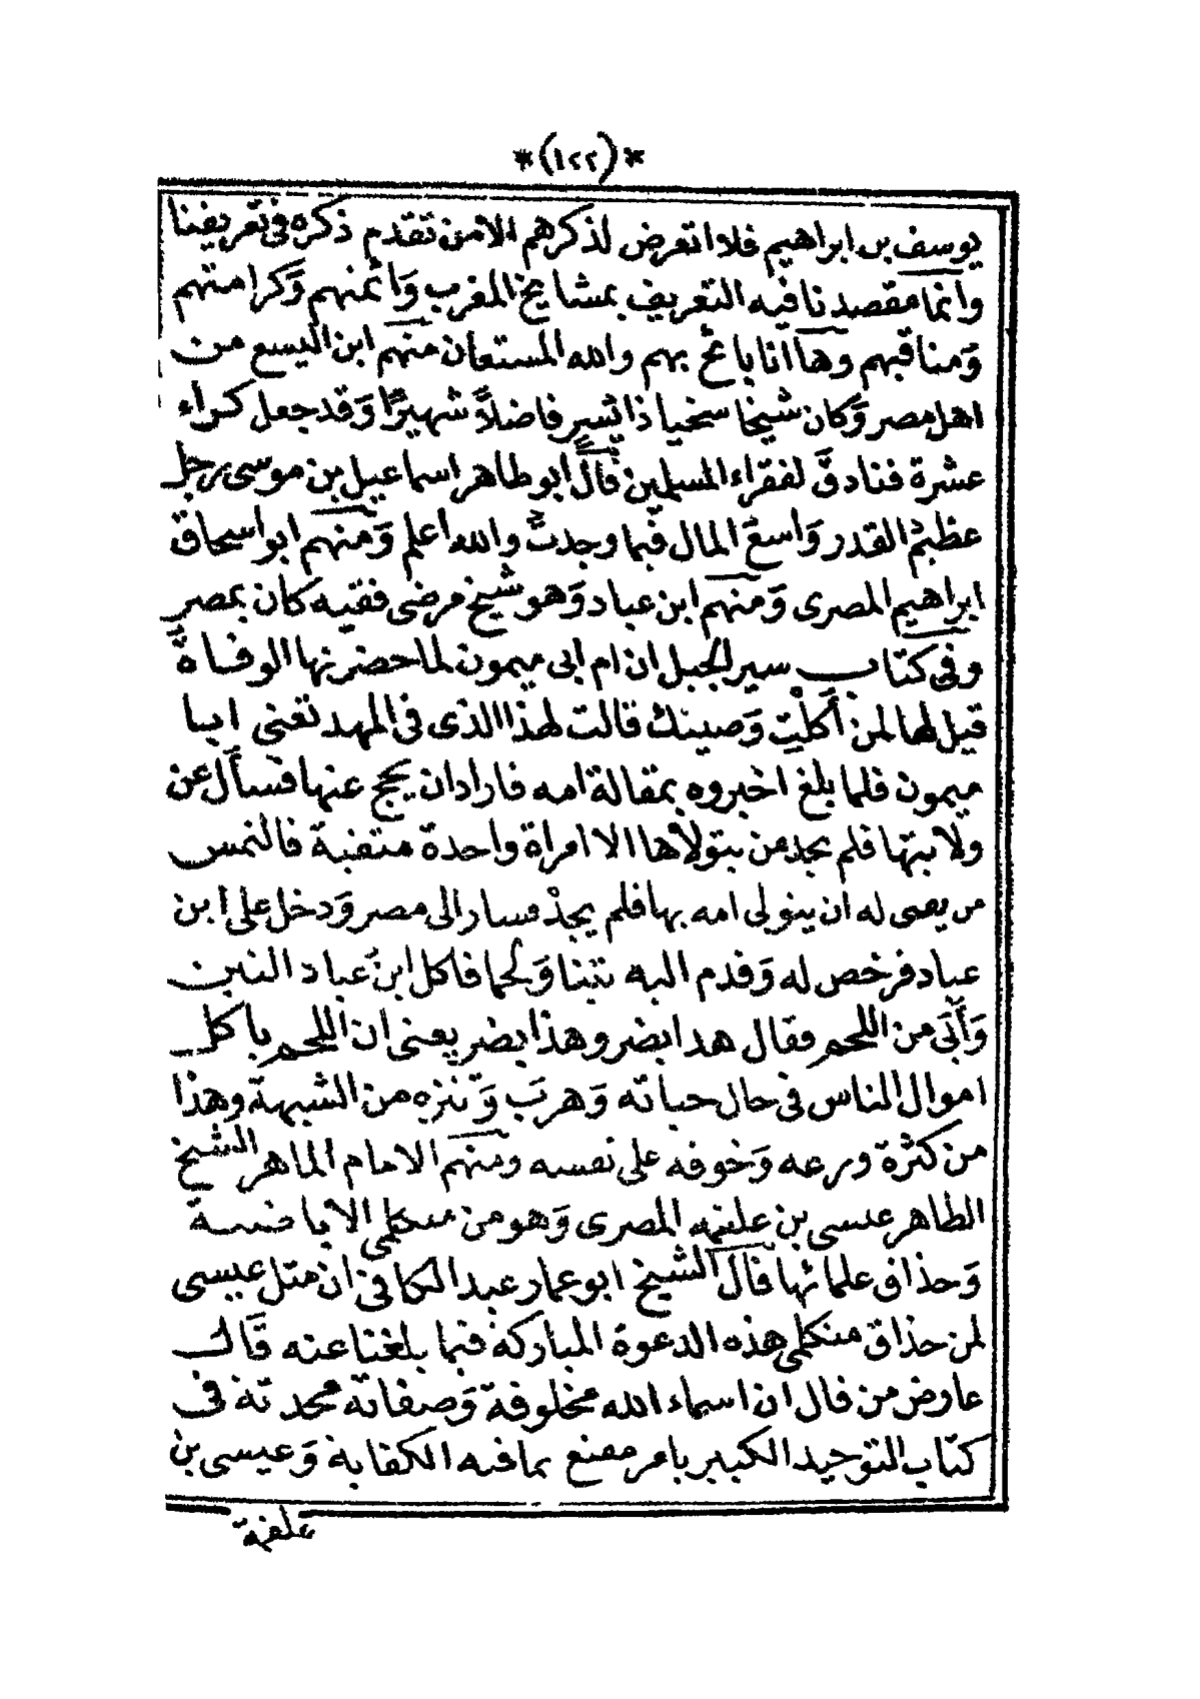 *(١٢٢)*
يوسف بن ابراهيم فلا اتعرض لذكرهم الا من تقدم ذكره فى تعريفنا
وانما مقصدنا فيه التعريف بمشايخ المغرب وَائمتهم وَكرامتهم
وَمناقبهم وها انا باخع بهم والله المستعان منهم ابن اليسع من
اهل مصر وَكان شيخا سخيا ذا تيسير فاضلاً شهيرًا وَقد جعل كراء
عشرة فنادق لفقراء المسلمين قال ابو طاهر اسماعيل بن موسى رجل
عظيم القدر وَاسع المال فيما وجدت والله اعلم وَمنهم ابو اسحاق
ابراهيم المصرى وَمنهم ابن عباد وَهو شيخ مرضى فقيه كان بمصر
وفى كتاب سير الجبل ان ام ابى ميمون لما حضرتها الوفاة
قيل لها لمن أَكلْتِ وَصيتك قالت لهذا الذى فى المهد تعنى ابا
ميمون فلما بلغ اخبروه بمقالة امه فاراد ان يحج عنها فسأل عن
ولايتها فلم يجد من يتولاها الا امراة واحدة متفتية فالتمس
من يصى له ان يتولى امه بها فلم يجدْ فسار الى مصر وَدخل على ابن
عباد فرخص له وَقدم اليه تينا وَلحما فاكل ابن عباد التين
وَأَبَى من اللحم فقال هدا يضر وهذا يضر يعنى ان اللحم ياكل
اموال الناس فى حال حياته وَهربَ وَتنزه من الشبهة وهذا
من كثرة ورعه وَخوفه على نفسه ومنهم الامام الماهر الشيخ
الطاهر عيسى بن علقمه المصرى وَهو من متكلمى الاباضية
وَحذاق علمائها قال الشيخ ابو عمار عبد الكافى ان مثل عيسى
لمن حذاق متكلمى هذه الدعوة المباركة فيما بلغنا عنه قَال
عارض من قال ان اسماء الله مخلوقة وَصفاته محدثة فى
كتاب التوحيد الكبير بامر مقنع بما فيه الكفاية وَعيسى بن
علقمة